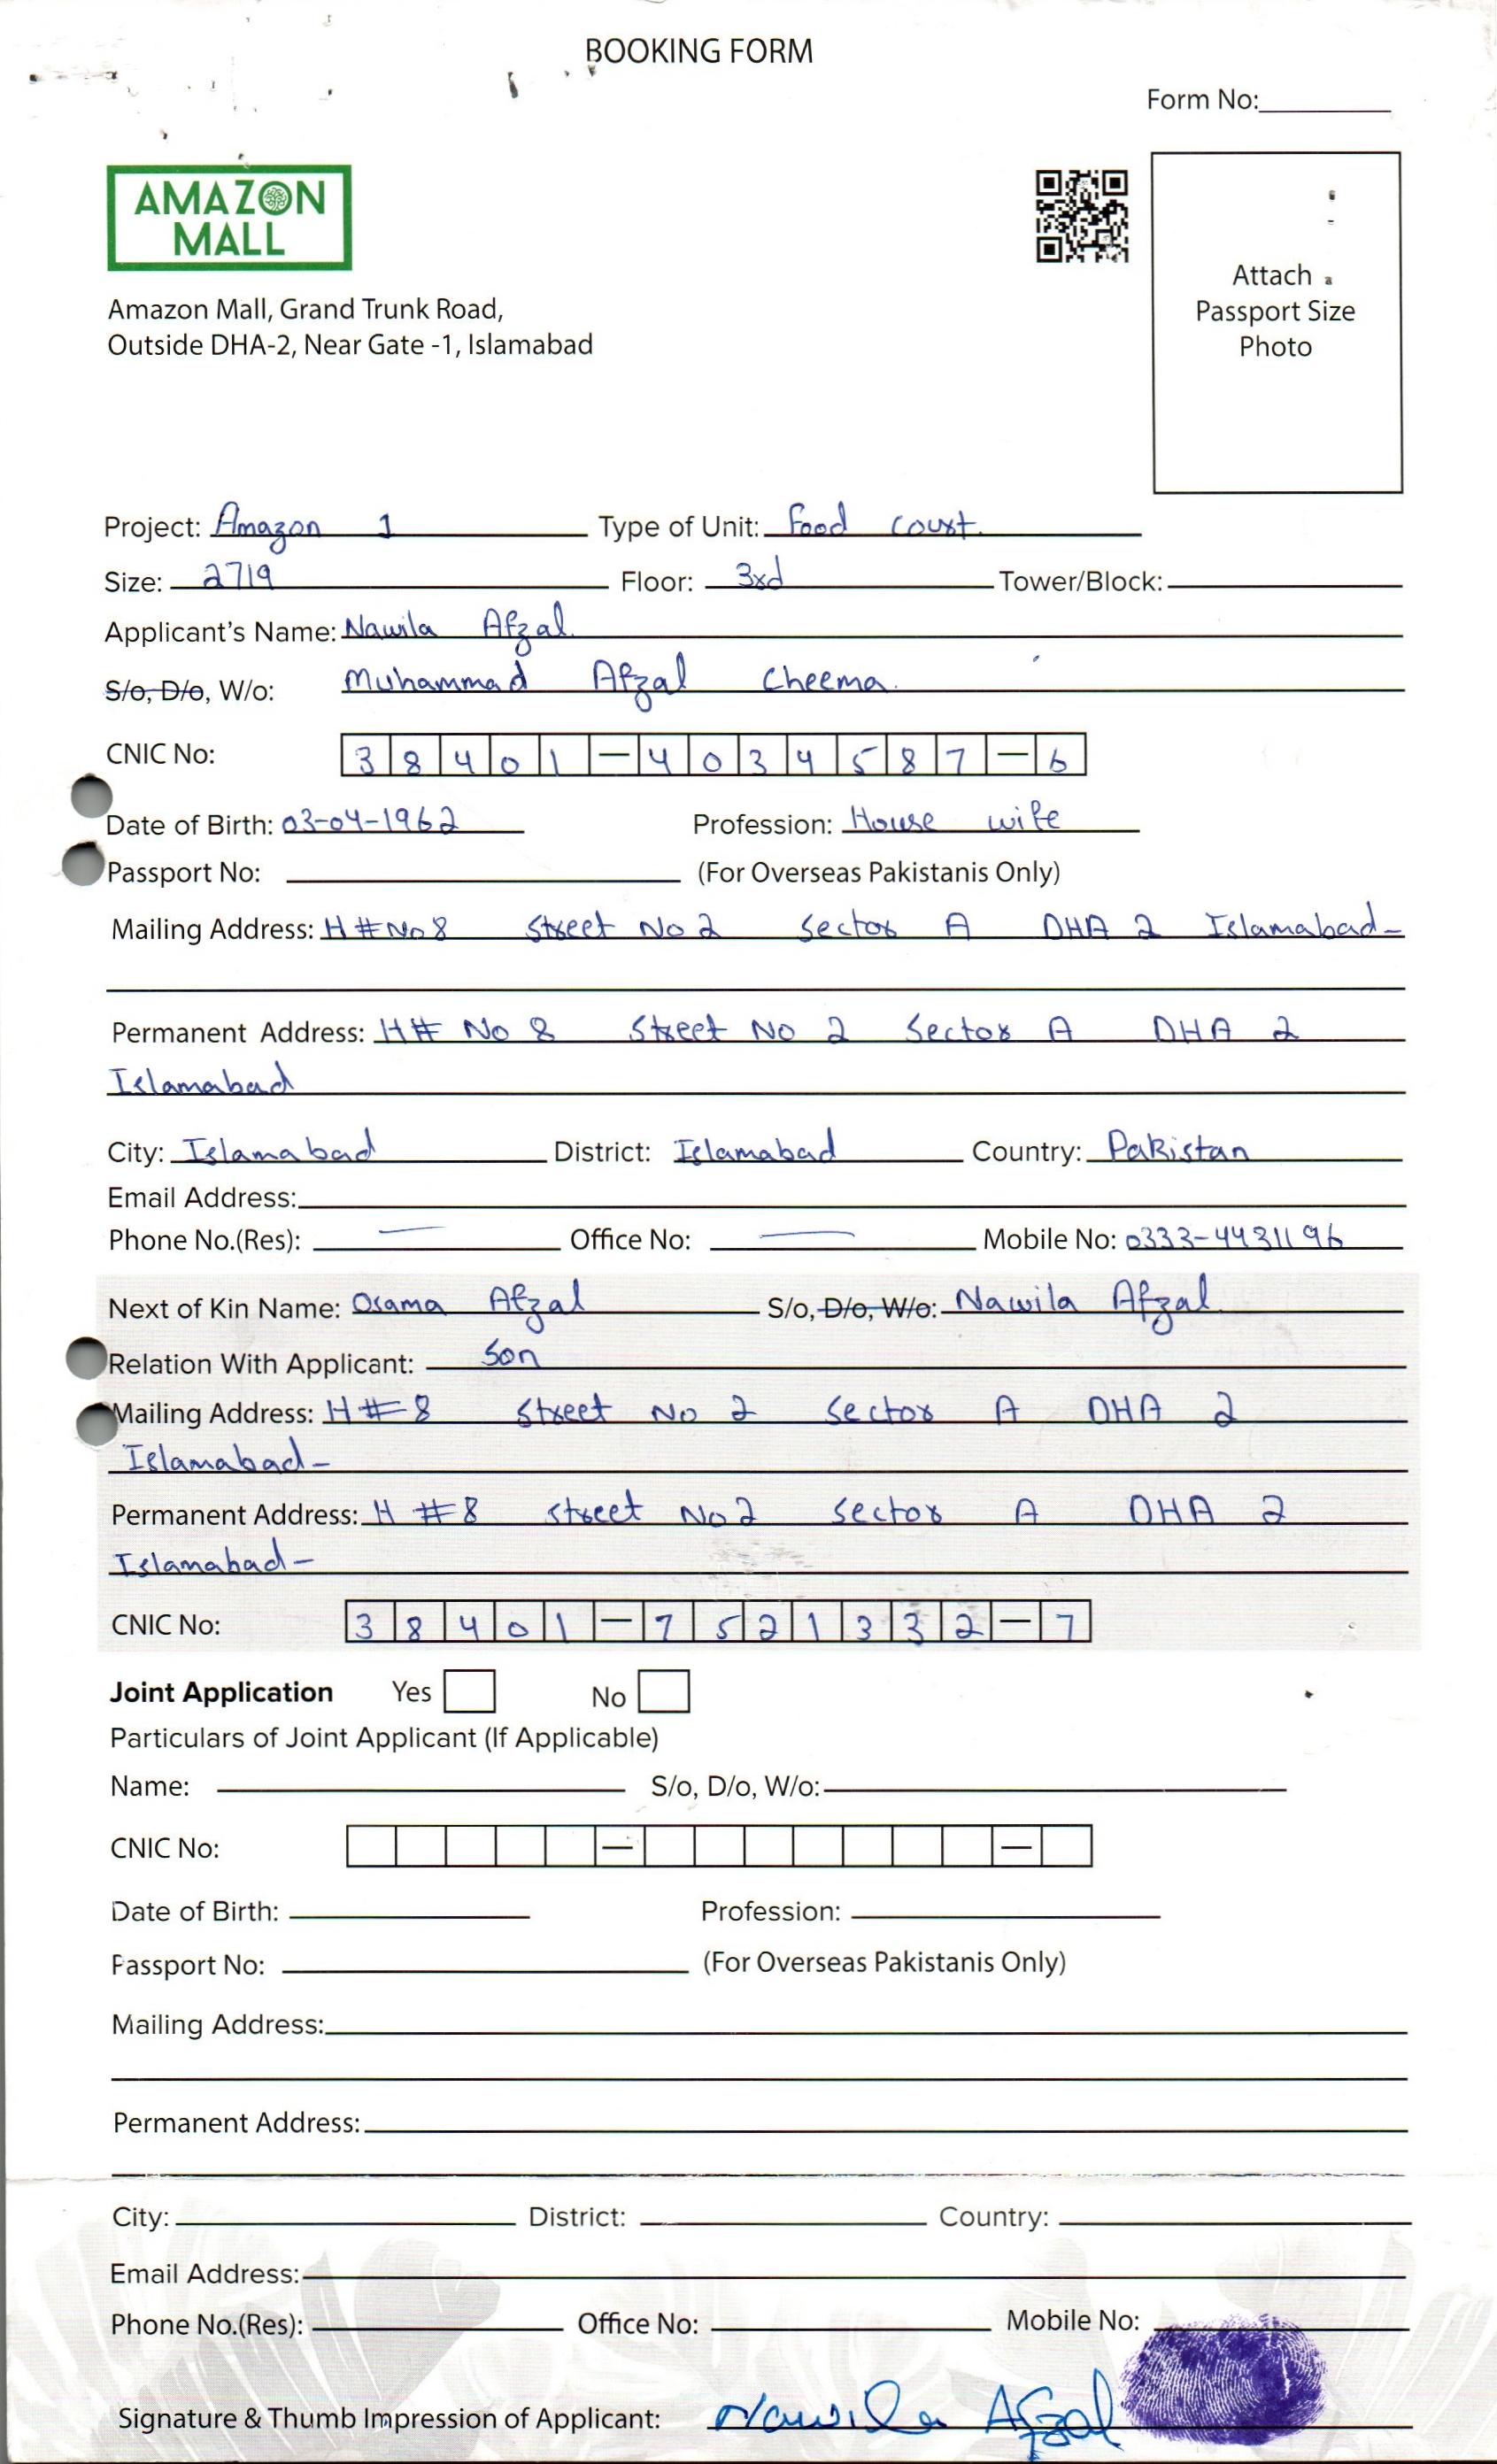 BOOKING FORM
Form No:
AMAZON
MALL
Attach
Passport Size
Photo
Amazon Mall, Grand Trunk Road,
Outside DHA-2, Near Gate -1, Islamabad
Project: Amazon 1 Type of Unit: Food court
Size: 2719 Floor: 3rd Tower/Block:
Applicant's Name: Nawila Afzal
S/o, D/o, W/o: Muhammad Afzal Cheema
CNIC No: 38401-4034587-6
Date of Birth: 03-04-1962 Profession: House wife
Passport No: (For Overseas Pakistanis Only)
Mailing Address: H # No 8 Street No 2 Sector A DHA 2 Islamabad-
Permanent Address: H# No 8 Street No 2 Sector A DHA 2
Islamabad
City: Islamabad District: Islamabad Country: Pakistan
Email Address:
Phone No.(Res): — Office No: — Mobile No: 0333-4431196
Next of Kin Name: Osama Afzal S/o, D/o, W/o: Nawila Afzal
Relation With Applicant: Son
Mailing Address: H # 8 Street No 2 Sector A DHA 2
Islamabad-
Permanent Address: H # 8 Street No 2 Sector A DHA 2
Islamabad-
CNIC No: 38401-7521332-7
Joint Application Yes No
Particulars of Joint Applicant (If Applicable)
Name: S/o, D/o, W/o:
CNIC No: — —
Date of Birth: Profession:
Passport No: (For Overseas Pakistanis Only)
Mailing Address:
Permanent Address:
City: District: Country:
Email Address:
Phone No.(Res): Office No: Mobile No:
Signature & Thumb Impression of Applicant: Nawila Afzal